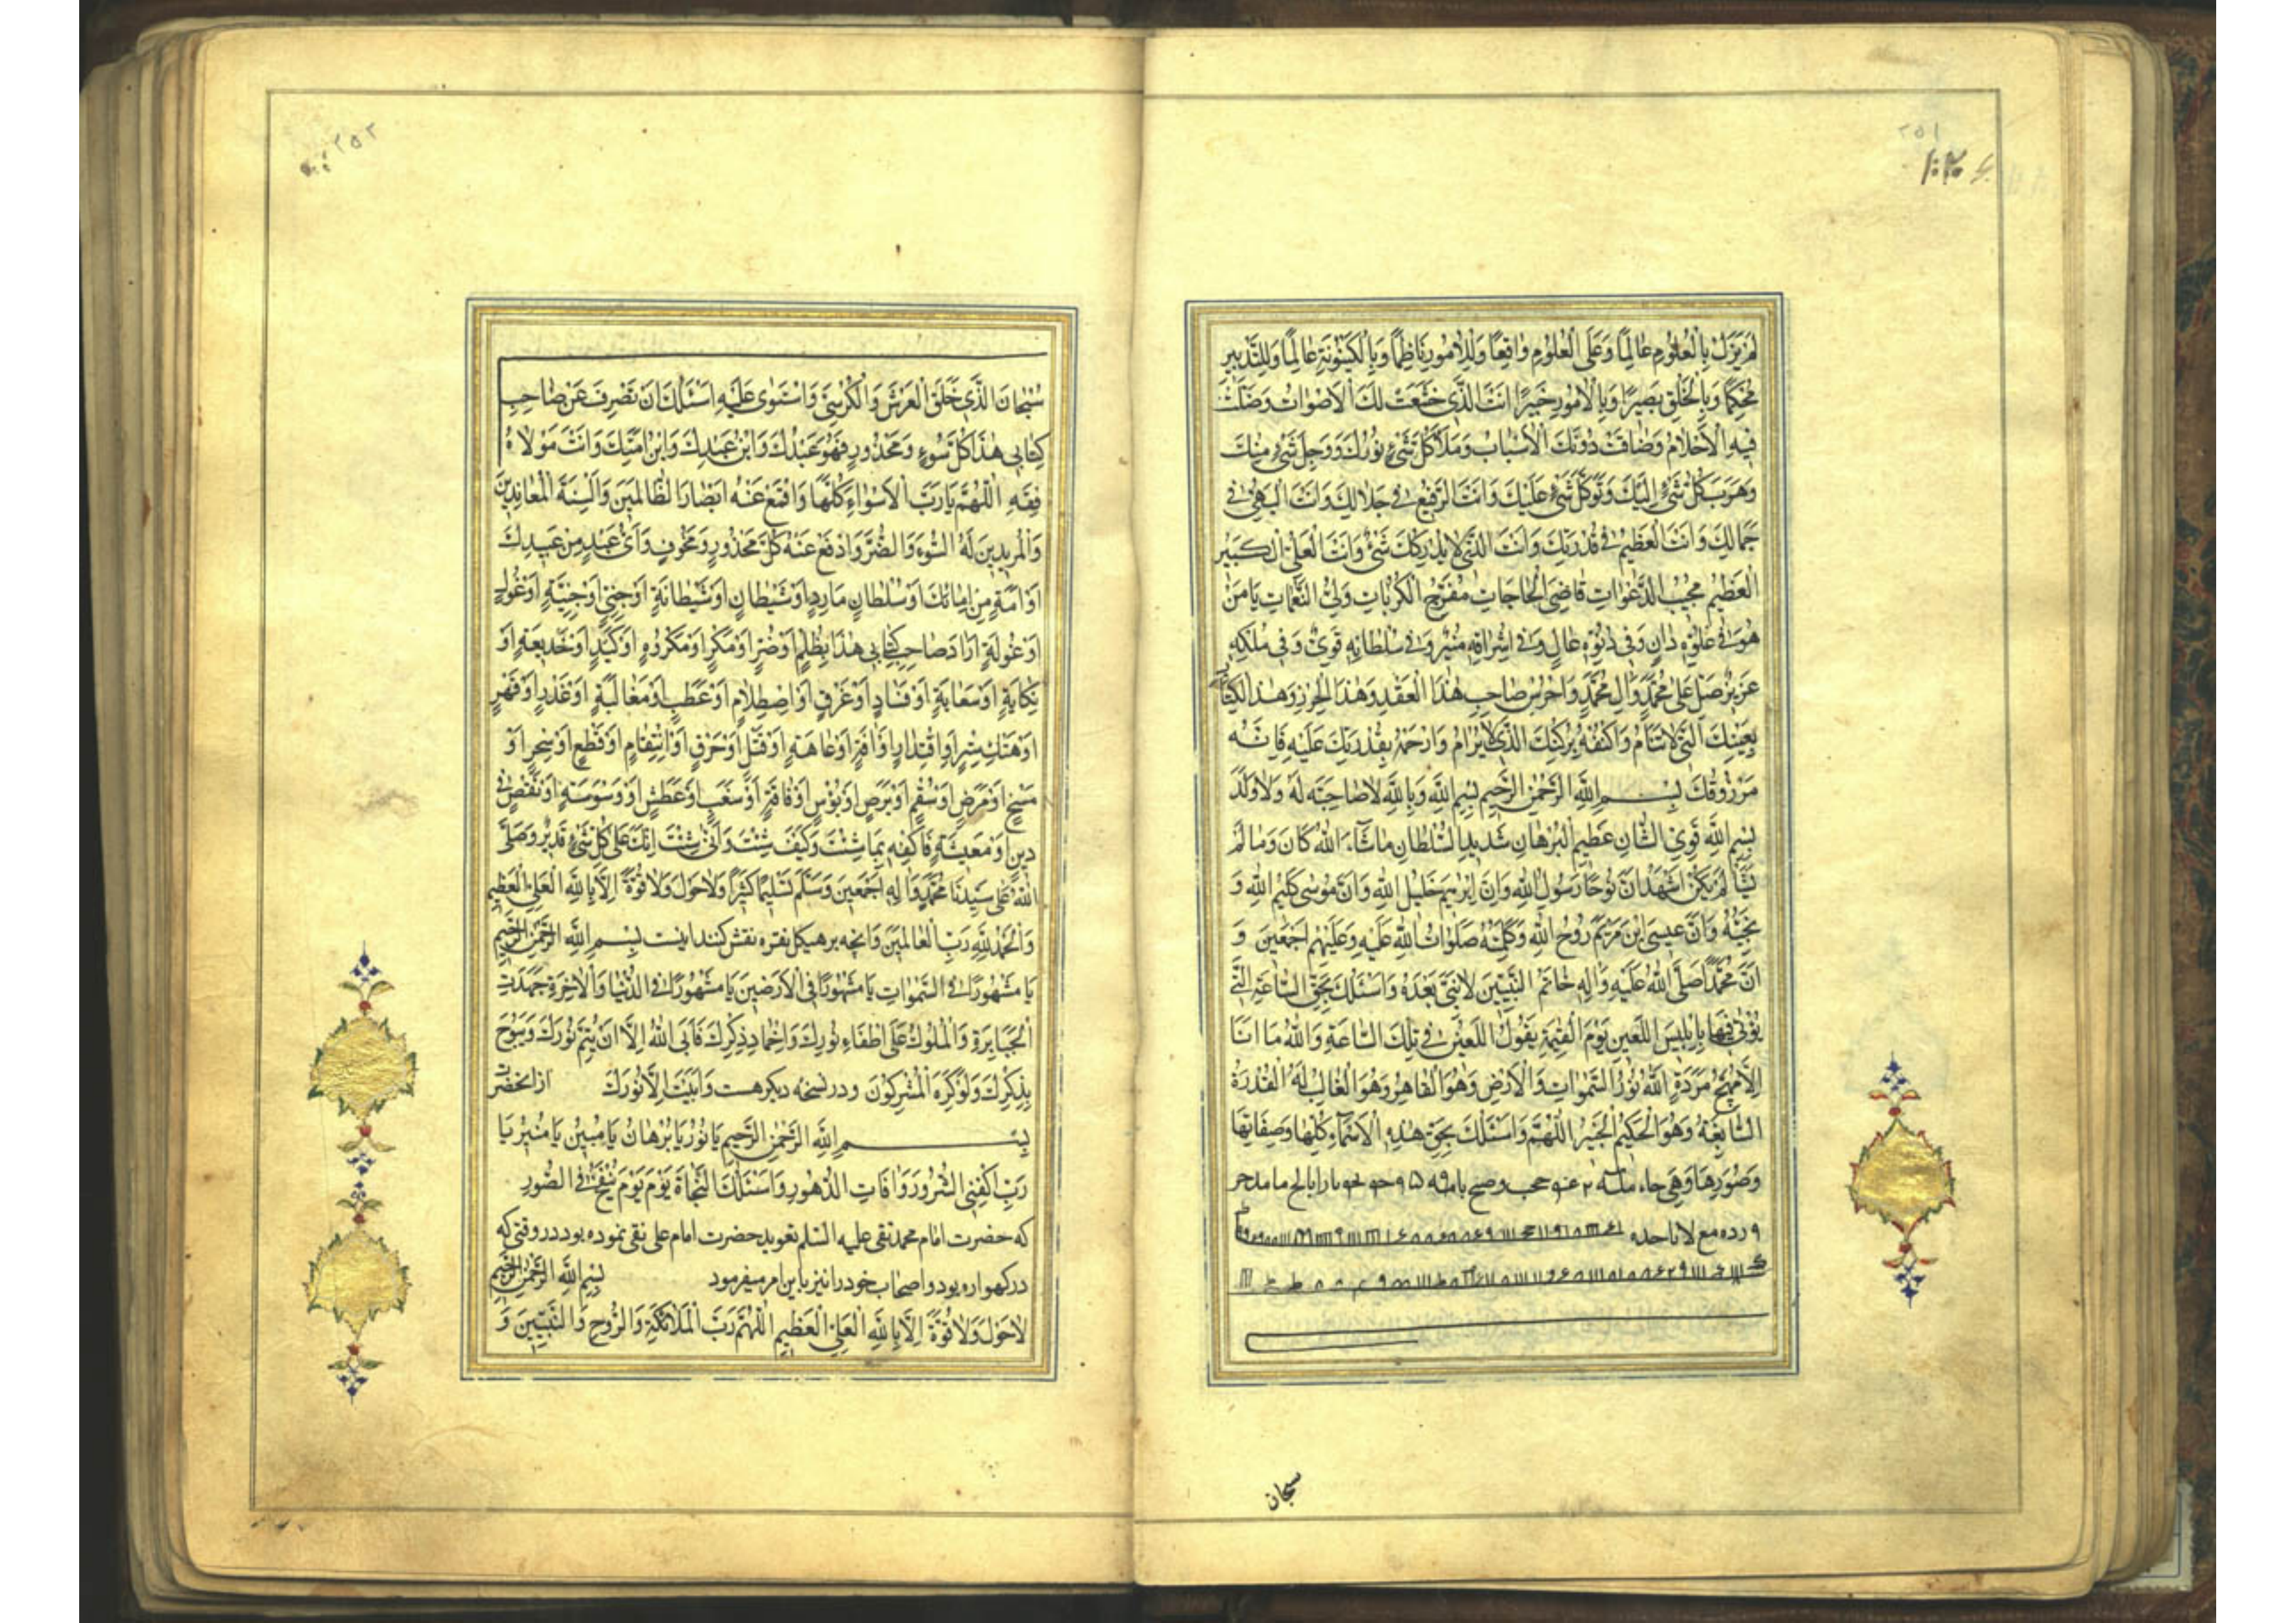 ۲۵۱
لَمْ يَزَلْ بِالْعُلُومِ عَالِمًا وَعَلَى الْعُلُومِ وَاقِعًا وَلِلْأُمُورِ نَاظِمًا وَبِالْكَيْنُونَةِ عَالِمًا وَلِلتَّدْبِيرِ
مُحْكِمًا وَبِالْخَلْقِ بَصِيرًا وَبِالْأُمُورِ خَبِيرًا أَنْتَ الَّذِي خَشَعَتْ لَكَ الْأَصْوَاتُ وَضَلَّتْ
فِيهِ الْأَحْلَامُ وَضَاقَتْ دُونَكَ الْأَسْبَابُ وَمَلَأَ كُلَّ شَيْءٍ نُورُكَ وَوَجِلَ شَيْءٍ مِنْكَ
وَهَرَبَ كُلُّ شَيْءٍ إِلَيْكَ وَتَوَكَّلَ شَيْءٍ عَلَيْكَ وَأَنْتَ الرَّفِيعُ فِي جَلَالِكَ وَأَنْتَ الْبَهِيُّ فِي
جَمَالِكَ وَأَنْتَ الْعَظِيمُ فِي قُدْرَتِكَ وَأَنْتَ الَّذِي لَا يُدْرِكُكَ شَيْءٌ وَأَنْتَ الْعَلِيُّ الْكَبِيرُ
الْعَظِيمُ مُجِيبُ الدَّعَوَاتِ قَاضِيَ الْحَاجَاتِ مُفَرِّجُ الْكُرُبَاتِ وَلِيُّ النَّعِمَاتِ يَا مَنْ
هُوَ فِي عُلُوِّهِ دَانٍ وَفِي دُنُوِّهِ عَالٍ وَفِي إِشْرَاقِهِ مُنِيرٌ وَفِي سُلْطَانِهِ قَوِيٌّ وَفِي مُلْكِهِ
عَزِيزٌ صَلِّ عَلَى مُحَمَّدٍ وَآلِ مُحَمَّدٍ وَاحْرُسْ صَاحِبَ هٰذَا الْعَقْدِ وَهٰذَا الْحِرْزِ وَهٰذَا الْكِتَابِ
بِعَيْنِكَ الَّتِي لَا تَنَامُ وَاكْنُفْهُ بِرُكْنِكَ الَّذِي لَا يُرَامُ وَارْحَمْهُ بِقُدْرَتِكَ عَلَيْهِ فَإِنَّهُ
مَرْزُوقُكَ بِسْمِ اللَّهِ الرَّحْمٰنِ الرَّحِيمِ بِسْمِ اللَّهِ وَبِاللَّهِ لَا صَاحِبَةَ لَهُ وَلَا وَلَدَ
بِسْمِ اللَّهِ قَوِيِّ الشَّانِ عَظِيمِ الْبُرْهَانِ شَدِيدِ السُّلْطَانِ مَا شَاءَ اللَّهُ كَانَ وَمَا لَمْ
يَشَأْ لَمْ يَكُنْ أَشْهَدُ أَنَّ نُوحًا رَسُولُ اللَّهِ وَأَنَّ إِبْرٰهِيمَ خَلِيلُ اللَّهِ وَأَنَّ مُوسَى كَلِيمُ اللَّهِ وَ
نَجِيُّهُ وَأَنَّ عِيسَى ابْنَ مَرْيَمَ رُوحُ اللَّهِ وَكَلِمَتُهُ صَلَوَاتُ اللَّهِ عَلَيْهِ وَعَلَيْهِمْ أَجْمَعِينَ وَ
أَنَّ مُحَمَّدًا صَلَّى اللَّهُ عَلَيْهِ وَآلِهِ خَاتَمُ النَّبِيِّينَ لَا نَبِيَّ بَعْدَهُ وَأَسْئَلُكَ بِحَقِّ السَّاعَةِ الَّتِي
يُؤْتَى فِيهَا بِإِبْلِيسَ اللَّعِينِ يَوْمَ الْقِيٰمَةِ يَقُولُ اللَّعِينُ فِي تِلْكَ السَّاعَةِ وَاللَّهِ مَا أَنَا
إِلَّا مُهَيِّجُ مَرَدَةٍ اللَّهُ نُورُ السَّمٰوَاتِ وَالْأَرْضِ وَهُوَ الْقَاهِرُ وَهُوَ الْغَالِبُ لَهُ الْقُدْرَةُ
السَّابِغَةُ وَهُوَ الْحَكِيمُ الْخَبِيرُ اللّٰهُمَّ وَأَسْئَلُكَ بِحَقِّ هٰذِهِ الْأَسْمَاءِ كُلِّهَا وَصِفَاتِهَا
وَصُوَرِهَا وَهِيَ
سبحان
۲۵۲
سُبْحَانَ الَّذِي خَلَقَ الْعَرْشَ وَالْكُرْسِيَّ وَاسْتَوَى عَلَيْهِ أَسْئَلُكَ أَنْ تَصْرِفَ عَنْ صَاحِبِ
كِتَابِي هٰذَا كُلَّ سُوءٍ وَمَحْذُورٍ فَهُوَ عَبْدُكَ وَابْنُ عَبْدِكَ وَابْنُ أَمَتِكَ وَأَنْتَ مَوْلَاهُ
فَقِهِ اللّٰهُمَّ يَا رَبِّ الْأَسْوَاءَ كُلَّهَا وَاقْمَعْ عَنْهُ أَبْصَارَ الظَّالِمِينَ وَأَلْسِنَةَ الْمُعَانِدِينَ
وَالْمُرِيدِينَ لَهُ السُّوءَ وَالضُّرَّ وَادْفَعْ عَنْهُ كُلَّ مَحْذُورٍ وَمَخُوفٍ وَأَيُّ عَبْدٍ مِنْ عَبِيدِكَ
أَوْ أَمَةٍ مِنْ إِمَائِكَ أَوْ سُلْطَانٍ مَارِدٍ أَوْ شَيْطَانٍ أَوْ شَيْطَانَةٍ أَوْ جِنِّيٍّ أَوْ جِنِّيَّةٍ أَوْ غُولٍ
أَوْ غُولَةٍ أَرَادَ صَاحِبَ كِتَابِي هٰذَا بِظُلْمٍ أَوْ ضُرٍّ أَوْ مَكْرٍ أَوْ مَكْرُوهٍ أَوْ كَيْدٍ أَوْ خَدِيعَةٍ أَوْ
نِكَايَةٍ أَوْ سَعَايَةٍ أَوْ فَسَادٍ أَوْ غَرَقٍ أَوْ اصْطِلَامٍ أَوْ عَطَبٍ أَوْ مُغَالَبَةٍ أَوْ غَدْرٍ أَوْ قَهْرٍ
أَوْ هَتْكِ سِتْرٍ أَوِ اقْتِدَارٍ أَوْ آفَةٍ أَوْ عَاهَةٍ أَوْ قَتْلٍ أَوْ حَرَقٍ أَوْ انْتِقَامٍ أَوْ قَطْعٍ أَوْ سِحْرٍ أَوْ
مَسْخٍ أَوْ مَرَضٍ أَوْ سُقْمٍ أَوْ بَرَصٍ أَوْ بُؤْسٍ أَوْ فَاقَةٍ أَوْ سَغَبٍ أَوْ عَطَشٍ أَوْ وَسْوَسَةٍ أَوْ نَقْصٍ فِي
دِينٍ أَوْ مَعِيشَةٍ فَاكْفِهِ بِمَا شِئْتَ وَكَيْفَ شِئْتَ وَأَنَّى شِئْتَ إِنَّكَ عَلَى كُلِّ شَيْءٍ قَدِيرٌ وَصَلَّى
اللَّهُ عَلَى سَيِّدِنَا مُحَمَّدٍ وَآلِهِ أَجْمَعِينَ وَسَلَّمَ تَسْلِيمًا كَثِيرًا وَلَا حَوْلَ وَلَا قُوَّةَ إِلَّا بِاللَّهِ الْعَلِيِّ الْعَظِيمِ
وَالْحَمْدُ لِلَّهِ رَبِّ الْعَالَمِينَ وَآنچه بر هیکل نقره نقش کنند اینست بِسْمِ اللَّهِ الرَّحْمٰنِ الرَّحِيمِ
يَا مَشْهُورًا فِي السَّمٰوَاتِ يَا مَشْهُورًا فِي الْأَرَضِينَ يَا مَشْهُورًا فِي الدُّنْيَا وَالْآخِرَةِ جَهَدَتِ
الْجَبَابِرَةُ وَالْمُلُوكُ عَلَى إِطْفَاءِ نُورِكَ وَإِخْمَادِ ذِكْرِكَ فَأَبَى اللَّهُ إِلَّا أَنْ يُتِمَّ نُورَكَ وَيَبُوحَ
بِذِكْرِكَ وَلَوْ كَرِهَ الْمُشْرِكُونَ و در نسخه دیگر هست وَأَبَيْتَ إِلَّا نُورَكَ از آنحضرت
بِسْمِ اللَّهِ الرَّحْمٰنِ الرَّحِيمِ يَا نُورُ يَا بُرْهَانُ يَا مُبِينُ يَا مُنِيرُ يَا
رَبِّ اكْفِنِي الشُّرُورَ وَآفَاتِ الدُّهُورِ وَأَسْئَلُكَ النَّجَاةَ يَوْمَ يَوْمَ يُنْفَخُ فِي الصُّورِ
که حضرت امام محمد تقی علیه السّلم تعوید حضرت امام علی نقی نموده بود در وقتی که
در گهواره بود و اصحاب خود را نیز باین امر میفرمود بِسْمِ اللَّهِ الرَّحْمٰنِ الرَّحِيمِ
لَا حَوْلَ وَلَا قُوَّةَ إِلَّا بِاللَّهِ الْعَلِيِّ الْعَظِيمِ اللّٰهُمَّ رَبَّ الْمَلَائِكَةِ وَالرُّوحِ وَالنَّبِيِّينَ وَ